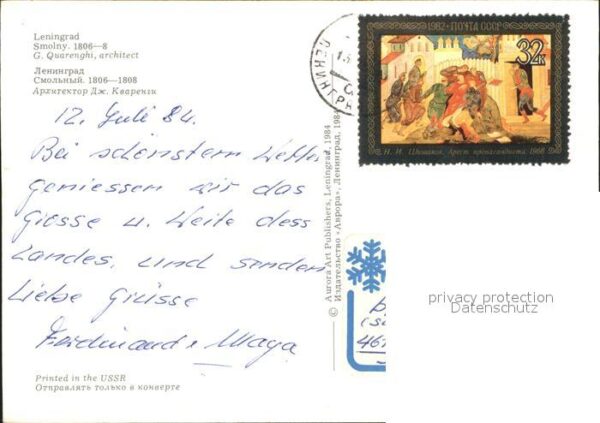 Leningrad
Smolny. 1806—8
G. Quarenghi, architect
Ленинград
Смольный. 1806—1808
Архитектор Дж. Кваренги
12. Juli 84.
Bei schönstem Wetter
geniessen wir das
Grosse u. Weite dess
Landes, und senden
liebe Grüsse
Ferdinand + Maya
Printed in the USSR
Отправлять только в конверте
© Aurora Art Publishers, Leningrad, 1984
Издательство «Аврора», Ленинград, 1984
ЛЕНИНГРА
1982 • ПОЧТА СССР
32к
Н. И. Шишаков, Арест пропагандиста, 1968
privacy protection
Datenschutz
461